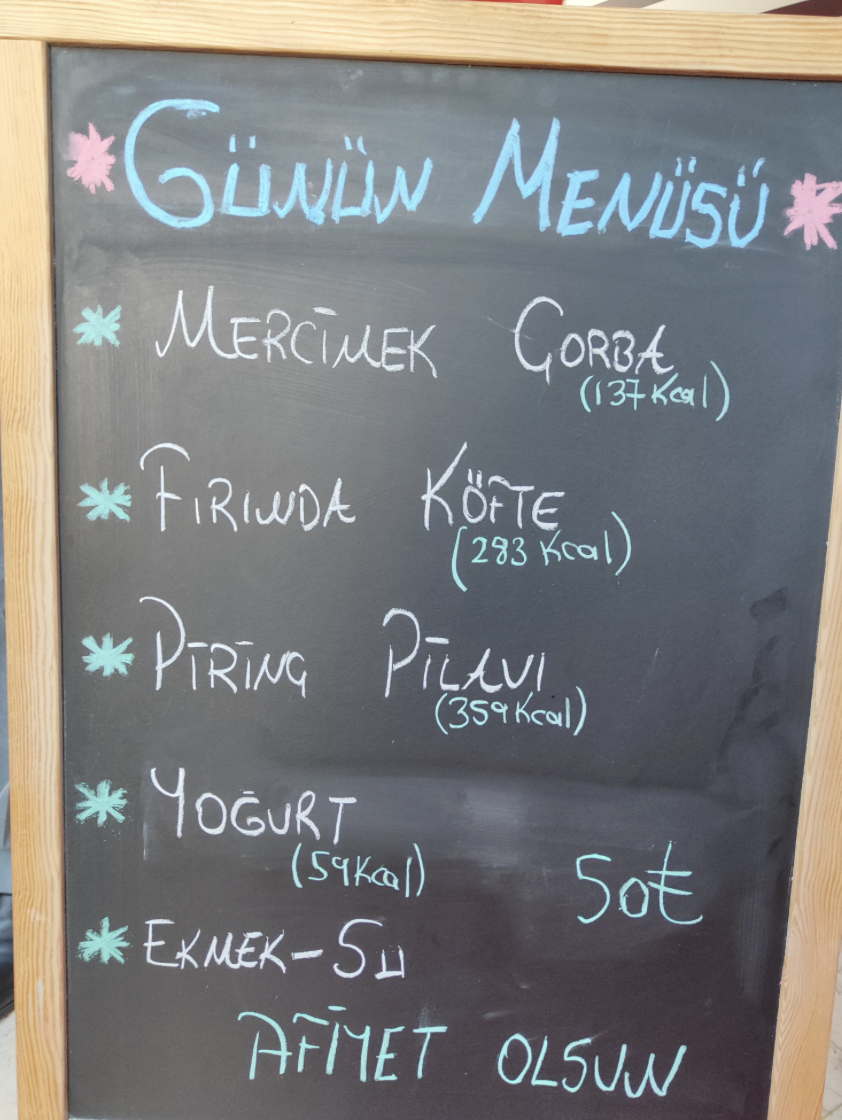 GÜNÜN MENÜSÜ
MERCİMEK ÇORBA
(137 Kcal)
FIRINDA KÖFTE
(283 Kcal)
PİRİNÇ PİLAVI
(359 Kcal)
YOĞURT
(59 Kcal)
50₺
EKMEK-SU
AFİYET OLSUN